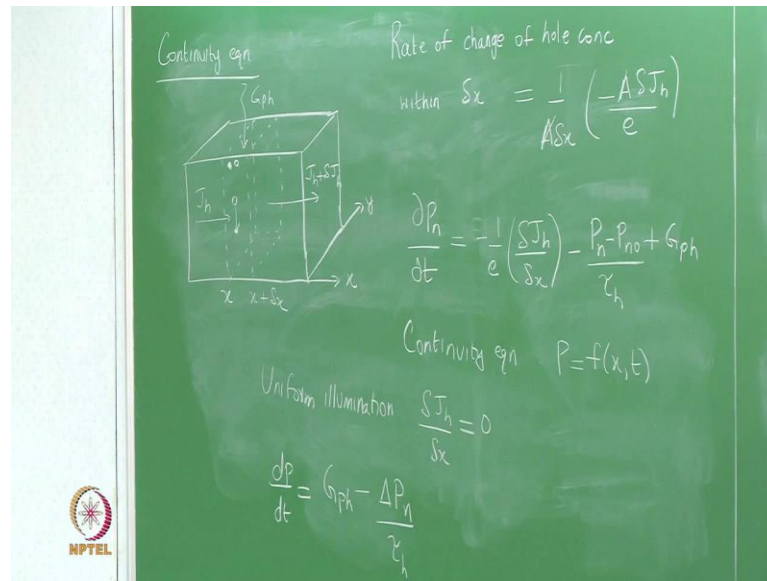 Continuity eqn
Gph
Jh
Jh+δJh
y
x
x x+δx
Rate of change of hole conc
within δx = 1/Aδx (-AδJh/e)
∂Pn/∂t = -1/e (δJh/δx) - Pn-Pno/τh + Gph
Continuity eqn P=f(x,t)
Uniform illumination δJh/δx = 0
dP/dt = Gph - ΔPn/τh
NPTEL